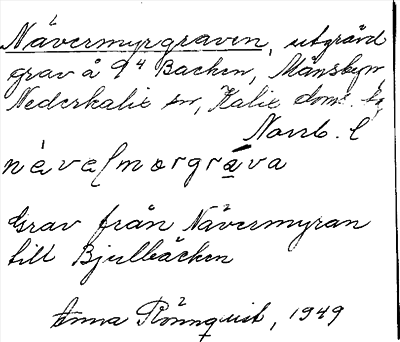 Nävermyrgraven, utgrävd
grav å 9⁴ Backen, Månsbyn
Nederkalix sn, Kalix doms. sg,
Norrb. l
Grav från Nävermyran
till Bjelbäcken
Anna Rönnquist, 1949